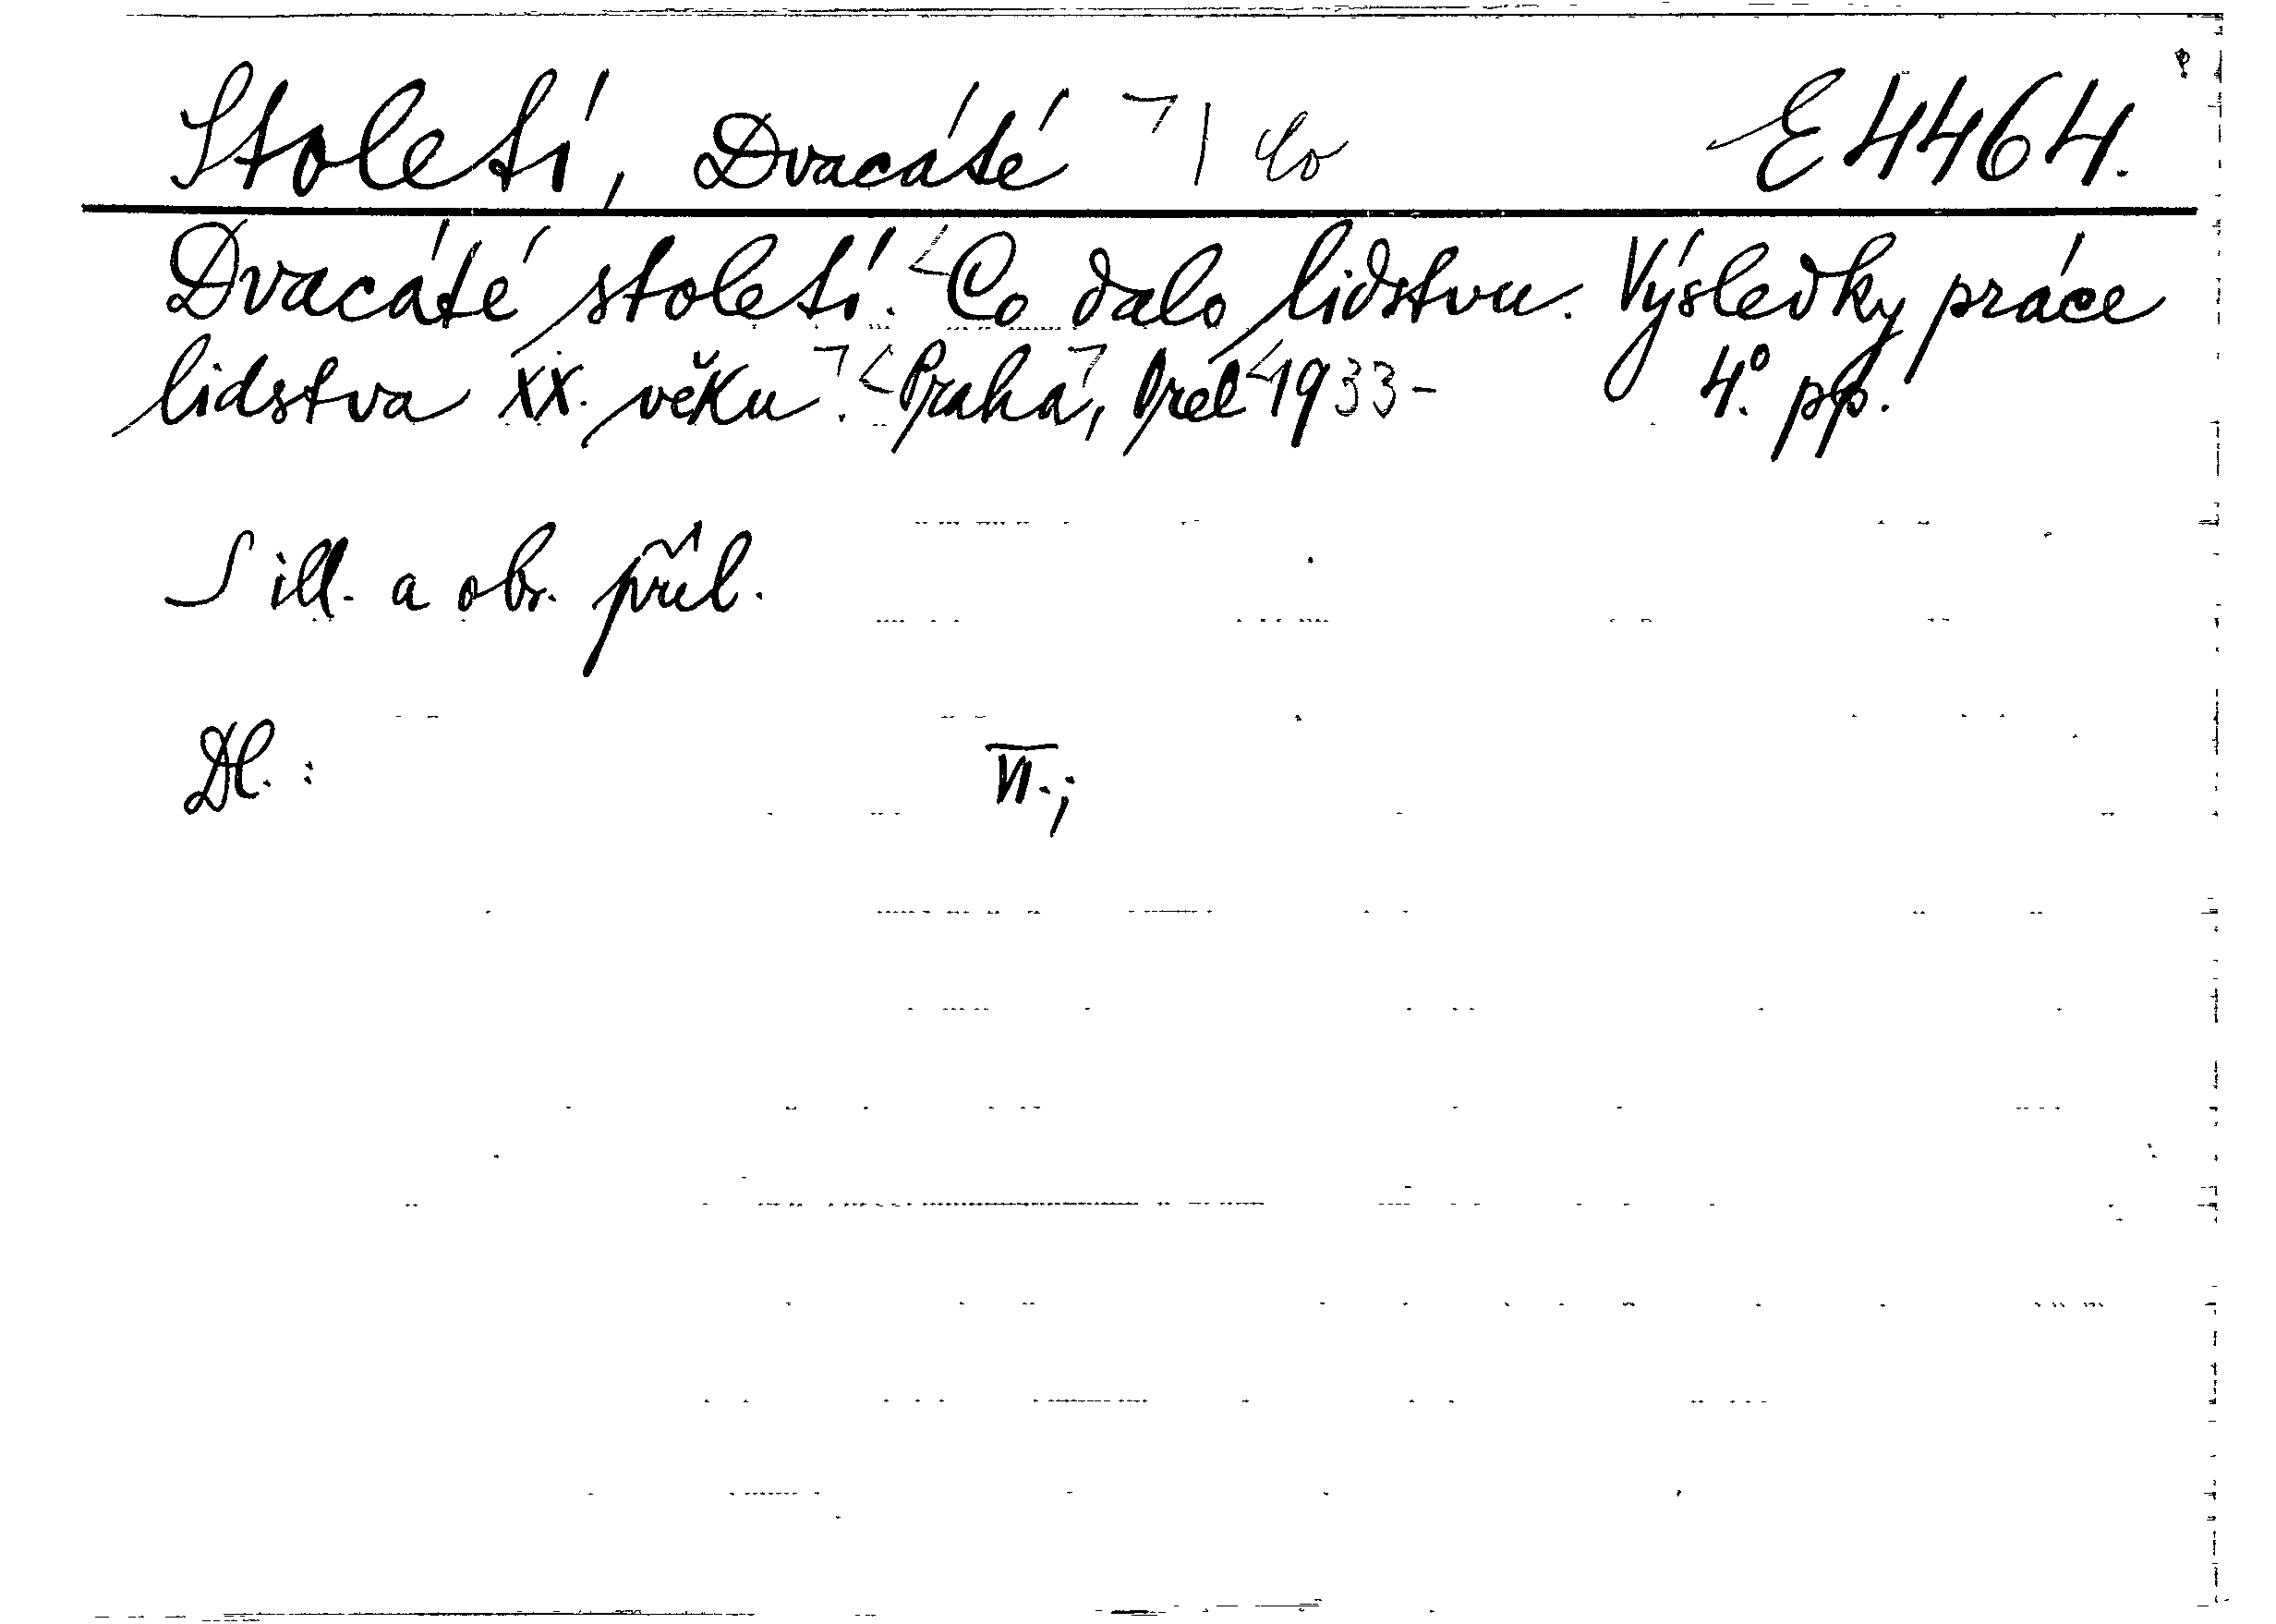 Století, Dvacáté ㄱ | Co E 4464.
Dvacáté století. <Co dalo lidstvu. Výsledky práce
lidstva XX. věku ㄱ. <Praha ㄱ, Orel <1933- 4°. pp.
S ill. a obr. příl.
Dl. : VI.;